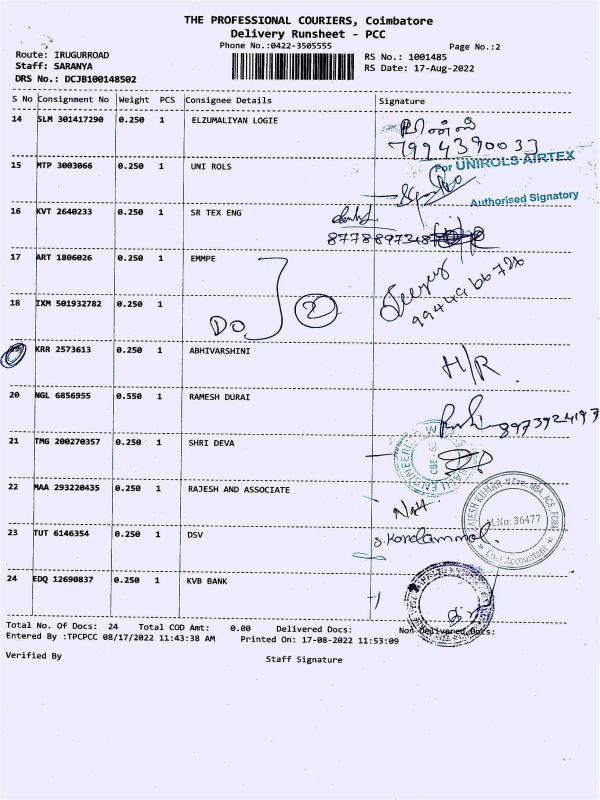 THE PROFESSIONAL COURIERS, Coimbatore
Delivery Runsheet - PCC
Phone No.:0422-3505555
Page No.:2
Route: IRUGURROAD
Staff: SARANYA
DRS No.: DCJB100148502
RS No.: 1001485
RS Date: 17-Aug-2022
S No Consignment No Weight PCS Consignee Details Signature
14 SLM 301417290 0.250 1 ELZUMALIYAN LOGIE
7994390033
15 MTP 3003066 0.250 1 UNI ROLS
For UNIROLS AIRTEX
Authorised Signatory
16 KVT 2640233 0.250 1 SR TEX ENG
17 ART 1806026 0.250 1 EMMPE
9944966726
18 IXM 501932782 0.250 1
Do 2
19 KRR 2573613 0.250 1 ABHIVARSHINI
H/R
20 NGL 6856955 0.550 1 RAMESH DURAI
8973924197
21 TMG 200270357 0.250 1 SHRI DEVA
22 MAA 293220435 0.250 1 RAJESH AND ASSOCIATE
RAJESH KUMAR
M.No: 36477
Cost Accountant
23 TUT 6146354 0.250 1 DSV
S.Kondammal
24 EDQ 12690837 0.250 1 KVB BANK
Total No. Of Docs: 24 Total COD Amt: 0.00 Delivered Docs: Non Delivered Docs:
Entered By :TPCPCC 08/17/2022 11:43:38 AM Printed On: 17-08-2022 11:53:09
Verified By
Staff Signature